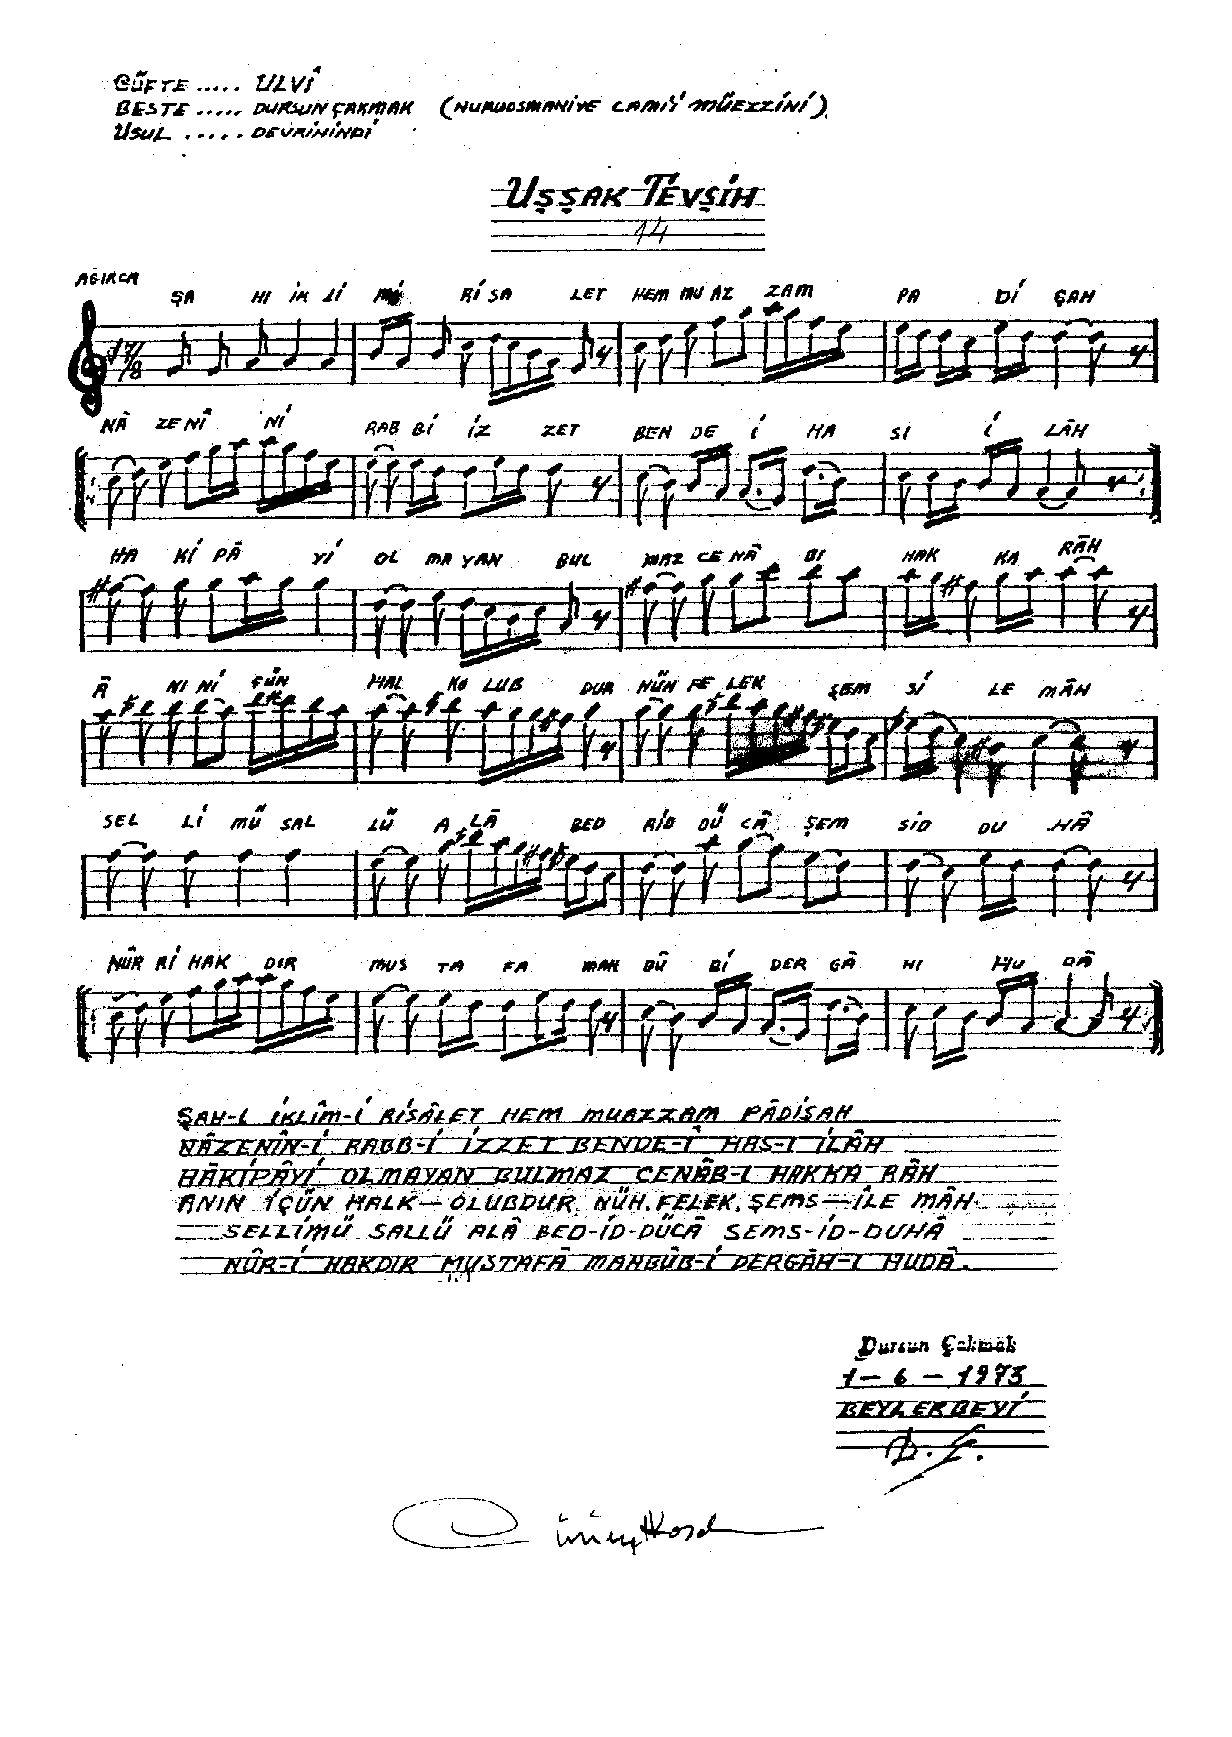 GÜFTE ..... ULVİ
BESTE ..... DURSUN ÇAKMAK (NURUOSMANİYE CAMİİ MÜEZZİNİ)
USUL ..... DEVRİHİNDİ
UŞŞAK TEVŞİH
14
AĞIRCA
ŞA HI İK Lİ Mİ RİSA LET HEM MU AZ ZAM PA Dİ ŞAH
7/8
NÂ ZENÎ Nİ RAB Bİ İZ ZET BEN DE İ HA SI İ LÂH
HA Kİ PÂ Yİ OL MA YAN BUL MAZ CE NÂ BI HAK KA RÂH
Â NI Nİ ÇÜN HAL KO LUB DUR NÜH FE LEK ŞEM Sİ LE MÂH
SEL Lİ MÜ SAL LÜ A LÂ BED RİD DÜ CÂ ŞEM SİD DU HÂ
NÛR Rİ HAK DIR MUS TA FA MAH BÛ Bİ DER GÂ HI HU DÂ
ŞAH-I İKLÎM-İ RİSÂLET HEM MUAZZAM PÂDİŞAH
NÂZENÎN-İ RABB-İ İZZET BENDE-İ HAS-I İLÂH
HÂKİPÂYİ OLMAYAN BULMAZ CENÂB-I HAKKA RÂH
ANIN İÇÜN HALK-OLUBDUR NÜH. FELEK. ŞEMS-İLE MÂH.
SELLİMÜ SALLÜ ALÂ BED-İD-DÜCÂ ŞEMS-İD-DUHÂ
NÛR-İ HAKDIR MUSTAFÂ MAHBÛB-İ DERGÂH-I HUDÂ.
Dursun Çakmak
1-6-1973
BEYLERBEYİ